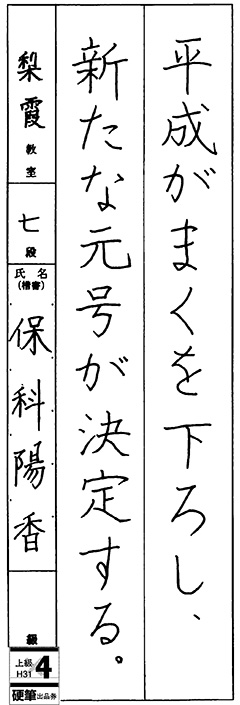 平成がまくを下ろし、
新たな元号が決定する。
梨霞教室
七段
氏名
(楷書)
保科陽香
級
上級 H31 4
硬筆出品券